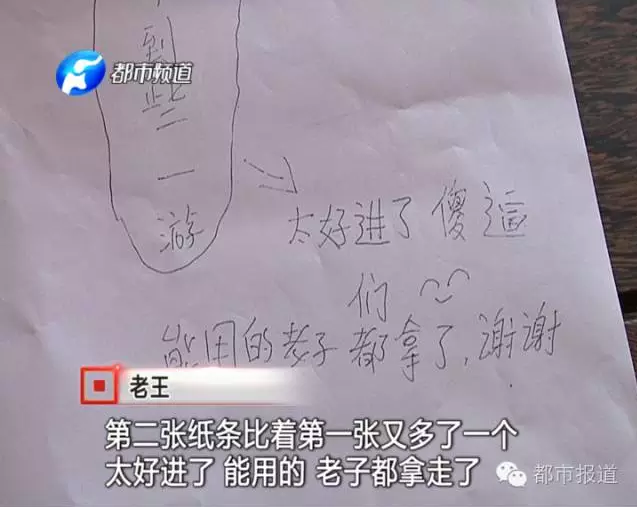 到
些
一
游
都市频道
太好进了 傻逼
们
能用的老子都拿了,谢谢
老王
第二张纸条比着第一张又多了一个
太好进了 能用的 老子都拿走了
都市报道